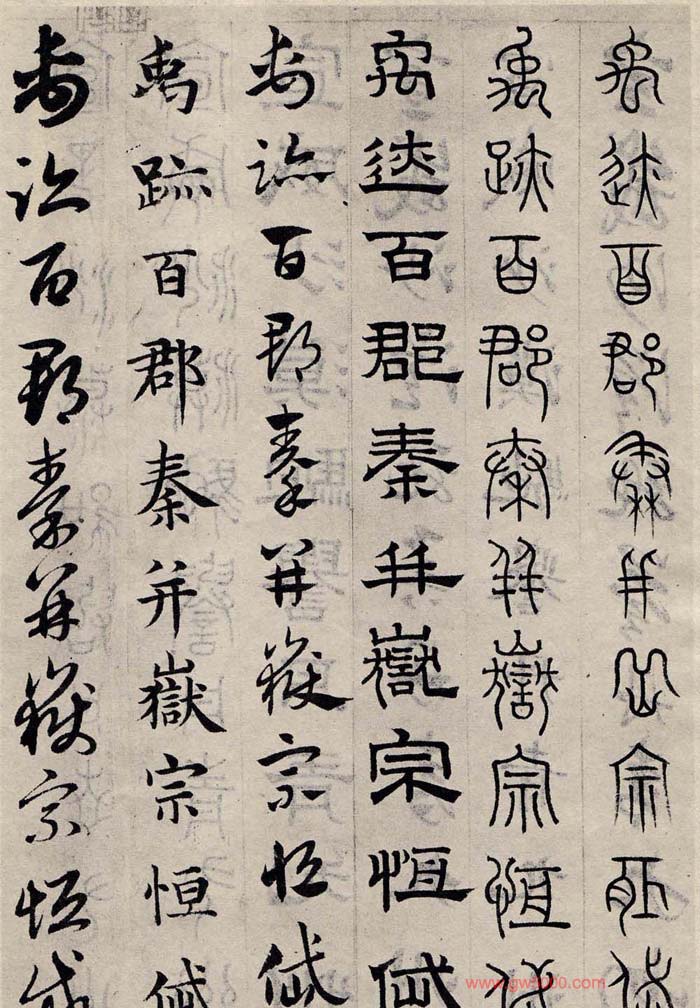 禹迹百郡秦并岳宗恆岱
禹跡百郡秦并嶽宗恆岱
禹迹百郡秦并嶽宗恆岱
禹跡百郡秦并嶽宗恒岱
禹跡百郡秦并嶽宗恒岱
禹跡百郡秦并嶽宗恒岱